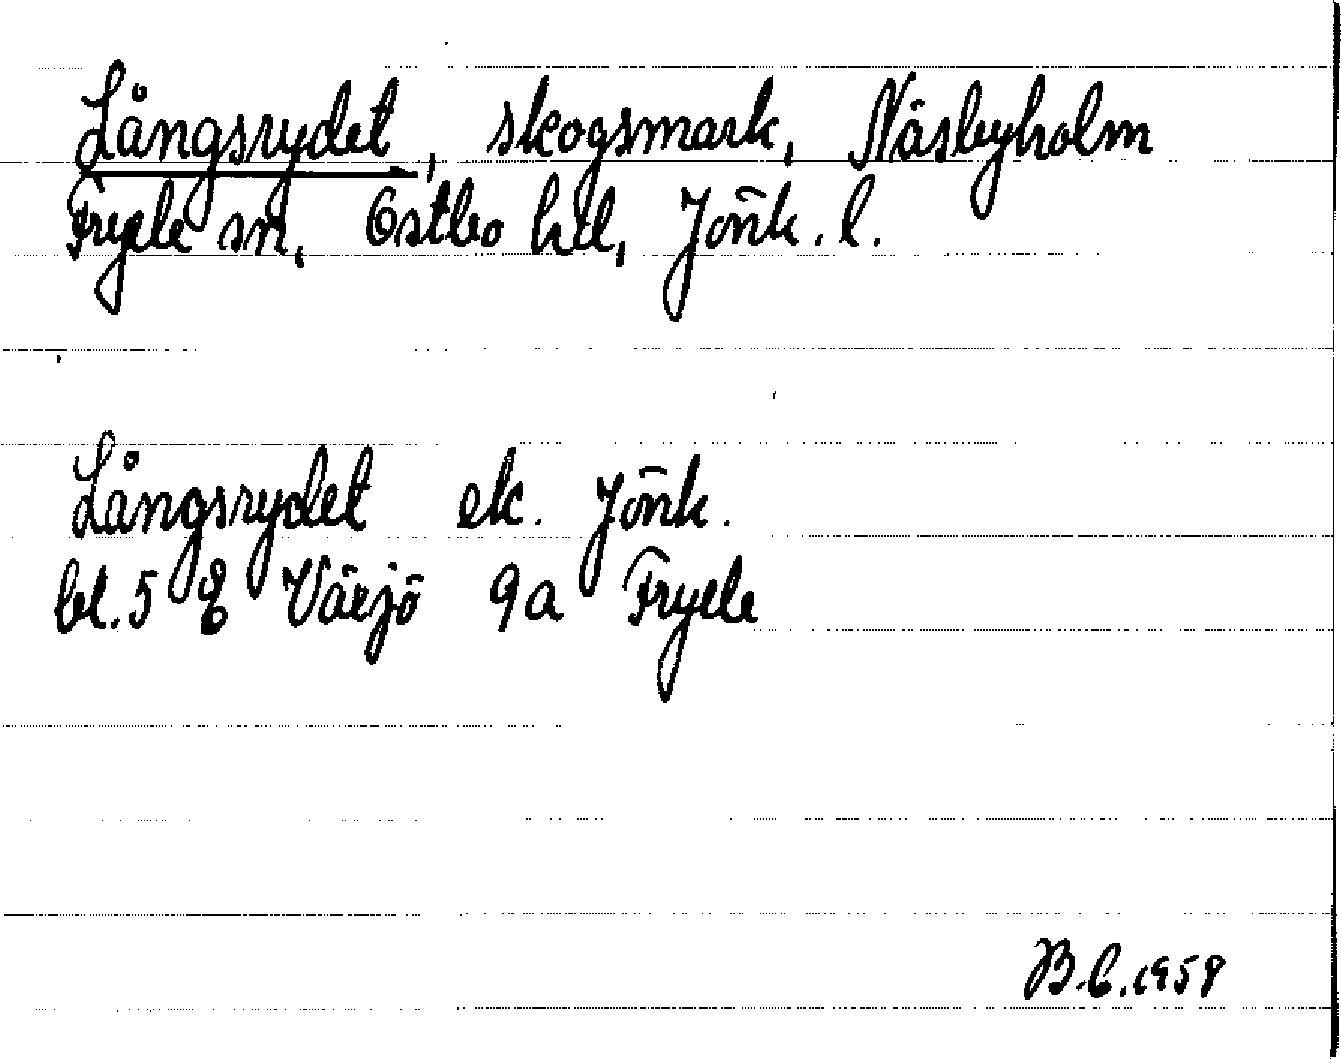 Långsrydet, skogsmark, Näsbyholm
Fryele sn, Östbo hd, Jönk. l.
Långsrydet ek. Jönk.
bl. 5 E Värjö 9a Fryele
B.C. 1958